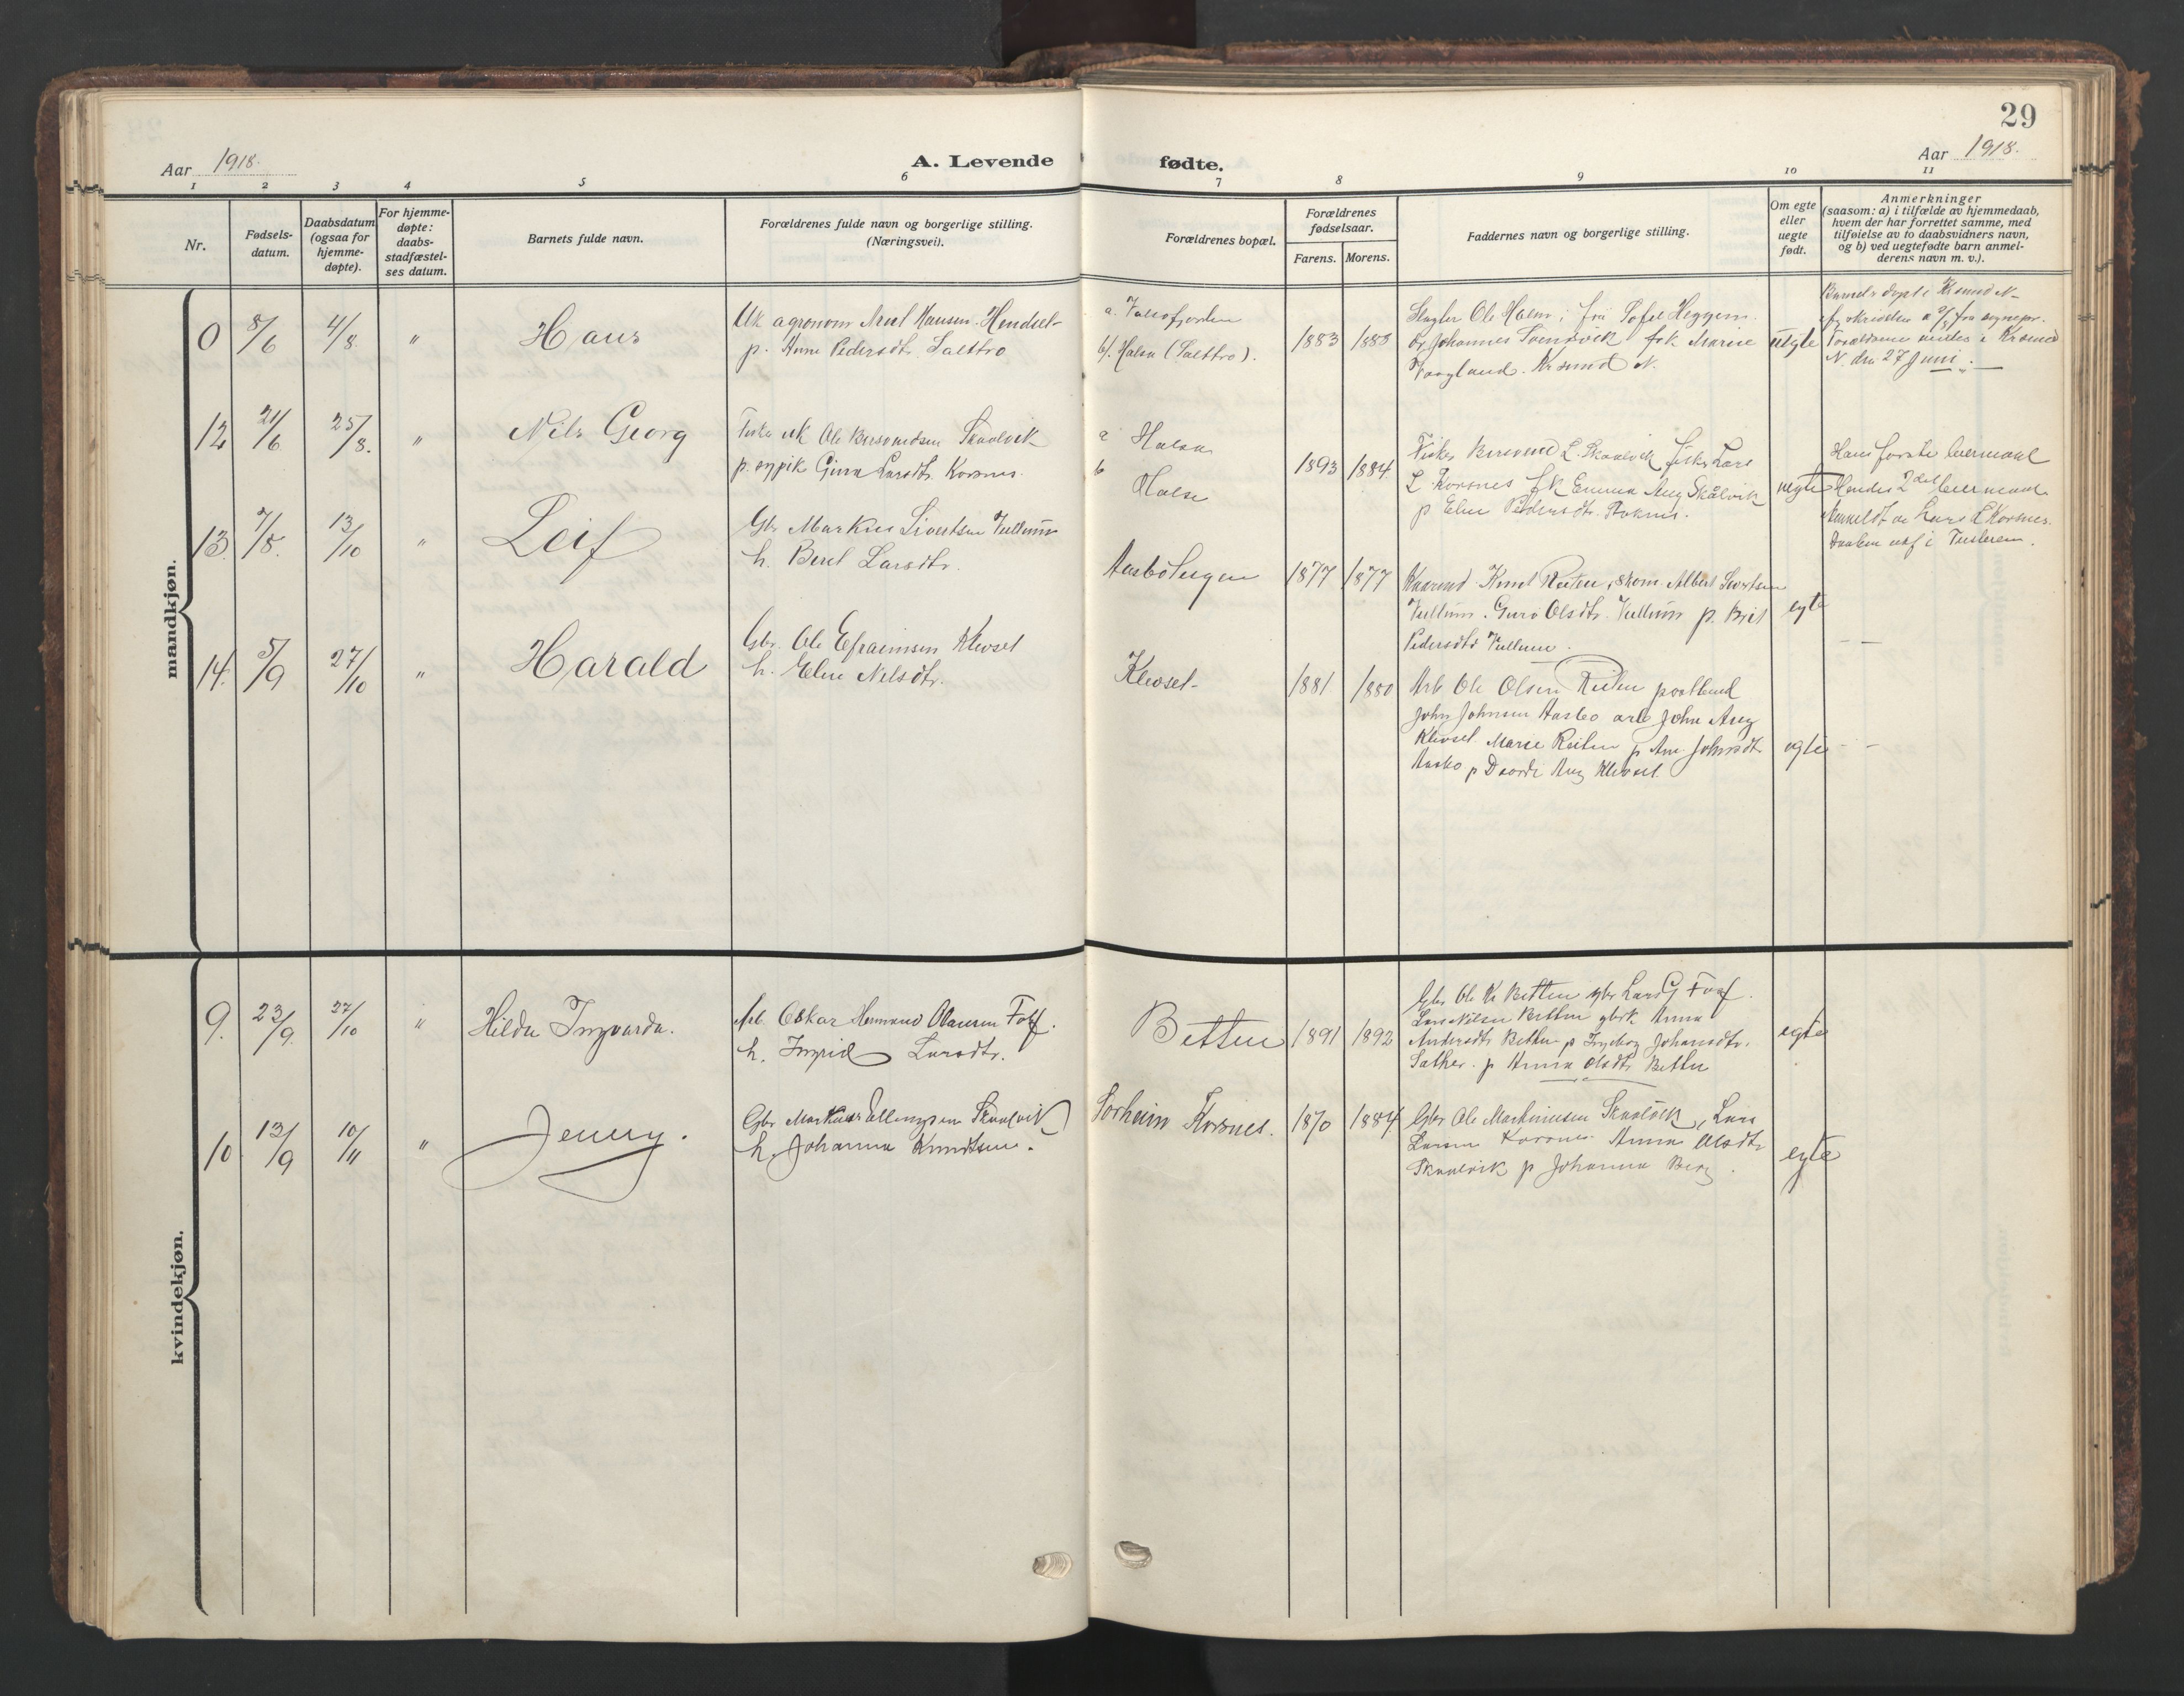 29
Aar 1918.
A. Levende fødte.
Aar 1918.
1 2 3 4 5 6 7 8 9 10 11
Nr.
Fødsels-
datum.
Daabsdatum
(ogsaa for
hjemme-
døpte).
For hjemme-
døpte:
daabs-
stadfæstel-
ses datum.
Barnets fulde navn.
Forældrenes fulde navn og borgerlige stilling.
(Næringsvei).
Forældrenes bopæl.
Forældrenes
fødselsaar.
Farens. Morens.
Faddernes navn og borgerlige stilling.
Om egte
eller
uegte
født.
Anmerkninger
(saasom: a) i tilfælde av hjemmedaab,
hvem der har forrettet samme, med
tilføielse av to daabsvidners navn,
og b) ved uegtefødte barn anmel-
derens navn m. v.).
mandkjøn.
0 8/6 4/8. " Hans
Uk agronom Hansen Hendset
p. Anne Pedersdtr.
a.
b). Halsa
1883 1885
Ole Halm i fru Sofie Heggem
og Johannes frk Marie
Krsund N.
uegte
døpt i Krsund N
N. den 27 Juni
12 21/6 25/8. " Nils Georg
Fisker uk Ole Skaalvik
p. sypik Gina Larsdtr. Korsnes.
a Halsa
b Halse
1893 1884.
Fisker L. Skaalvik fisker Lars
L. Korsnes fk Emma Aug Skålvik
p Elen Pedersdtr.
uegte
Hans første leiermaal
Hendes 2det leiermaal
Anmeldt av Lars L Korsnes.
Daaben utf i Tusteren.
13. 7/8. 13/10 " Leif
Gbr Markus Sivertsen Vullum
h. Beret Larsdtr.
1877 1877
Knut Reiten, skom. Albert Sivertsen
Vullum. Guro Olsdtr. Vullum p. Brit
Pedersdtr Vullum.
egte
14. 5/9 27/10 " Harald
Gbr. Ole Efraimsen Klevset
h. Elen Nilsdtr.
Klevset
1881 1880
Arb. Ole Olsen Reiten
John Johnsen Aasbø arb John Aug
Klevset. Marie Reiten p Ane Johnsdtr
Aasbø p Aug Klevset
egte
kvindekjøn.
9. 23/9. 27/10 " Hilda Ingvarda.
Arb. Oskar Hermand Olausen
h. Ingrid Larsdtr.
Betten
1891 1892
Gbr Ole Kr Betten gbr Lars G
Lars Nilsen Betten gbrk Anna
Andersdtr Betten p Ingeborg Johansdtr.
Sæther. p Anna Olsdtr Betten
egte
10 13/9 10/11 " Jenny.
Gbr Markus Ellingsen Skaalvik
h. Johanna Knudtsen.
Sørheim Korsnes.
1870 1884
Gbr Ole Skaalvik, Lars
Larsen Korsnes Anna Olsdtr
Skaalvik p Johanna Berg.
egte